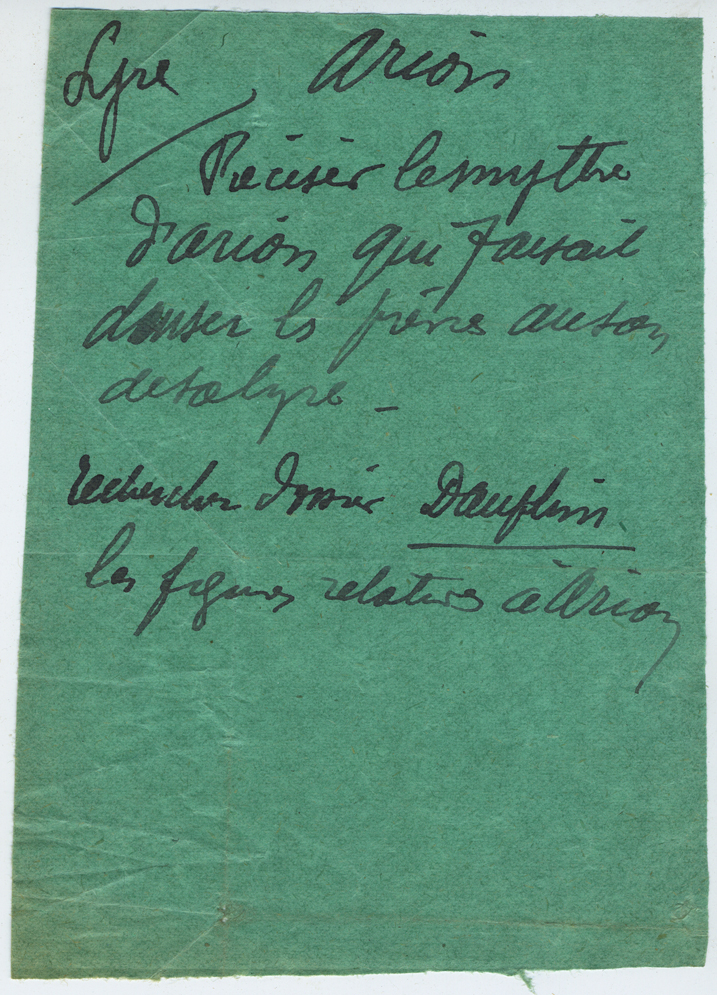 Lyre Arion
Préciser le mythe
d'arion qui faisait
danser les pierres au son
de sa lyre _
rechercher dossier Dauphin
les figures relatives à Arion